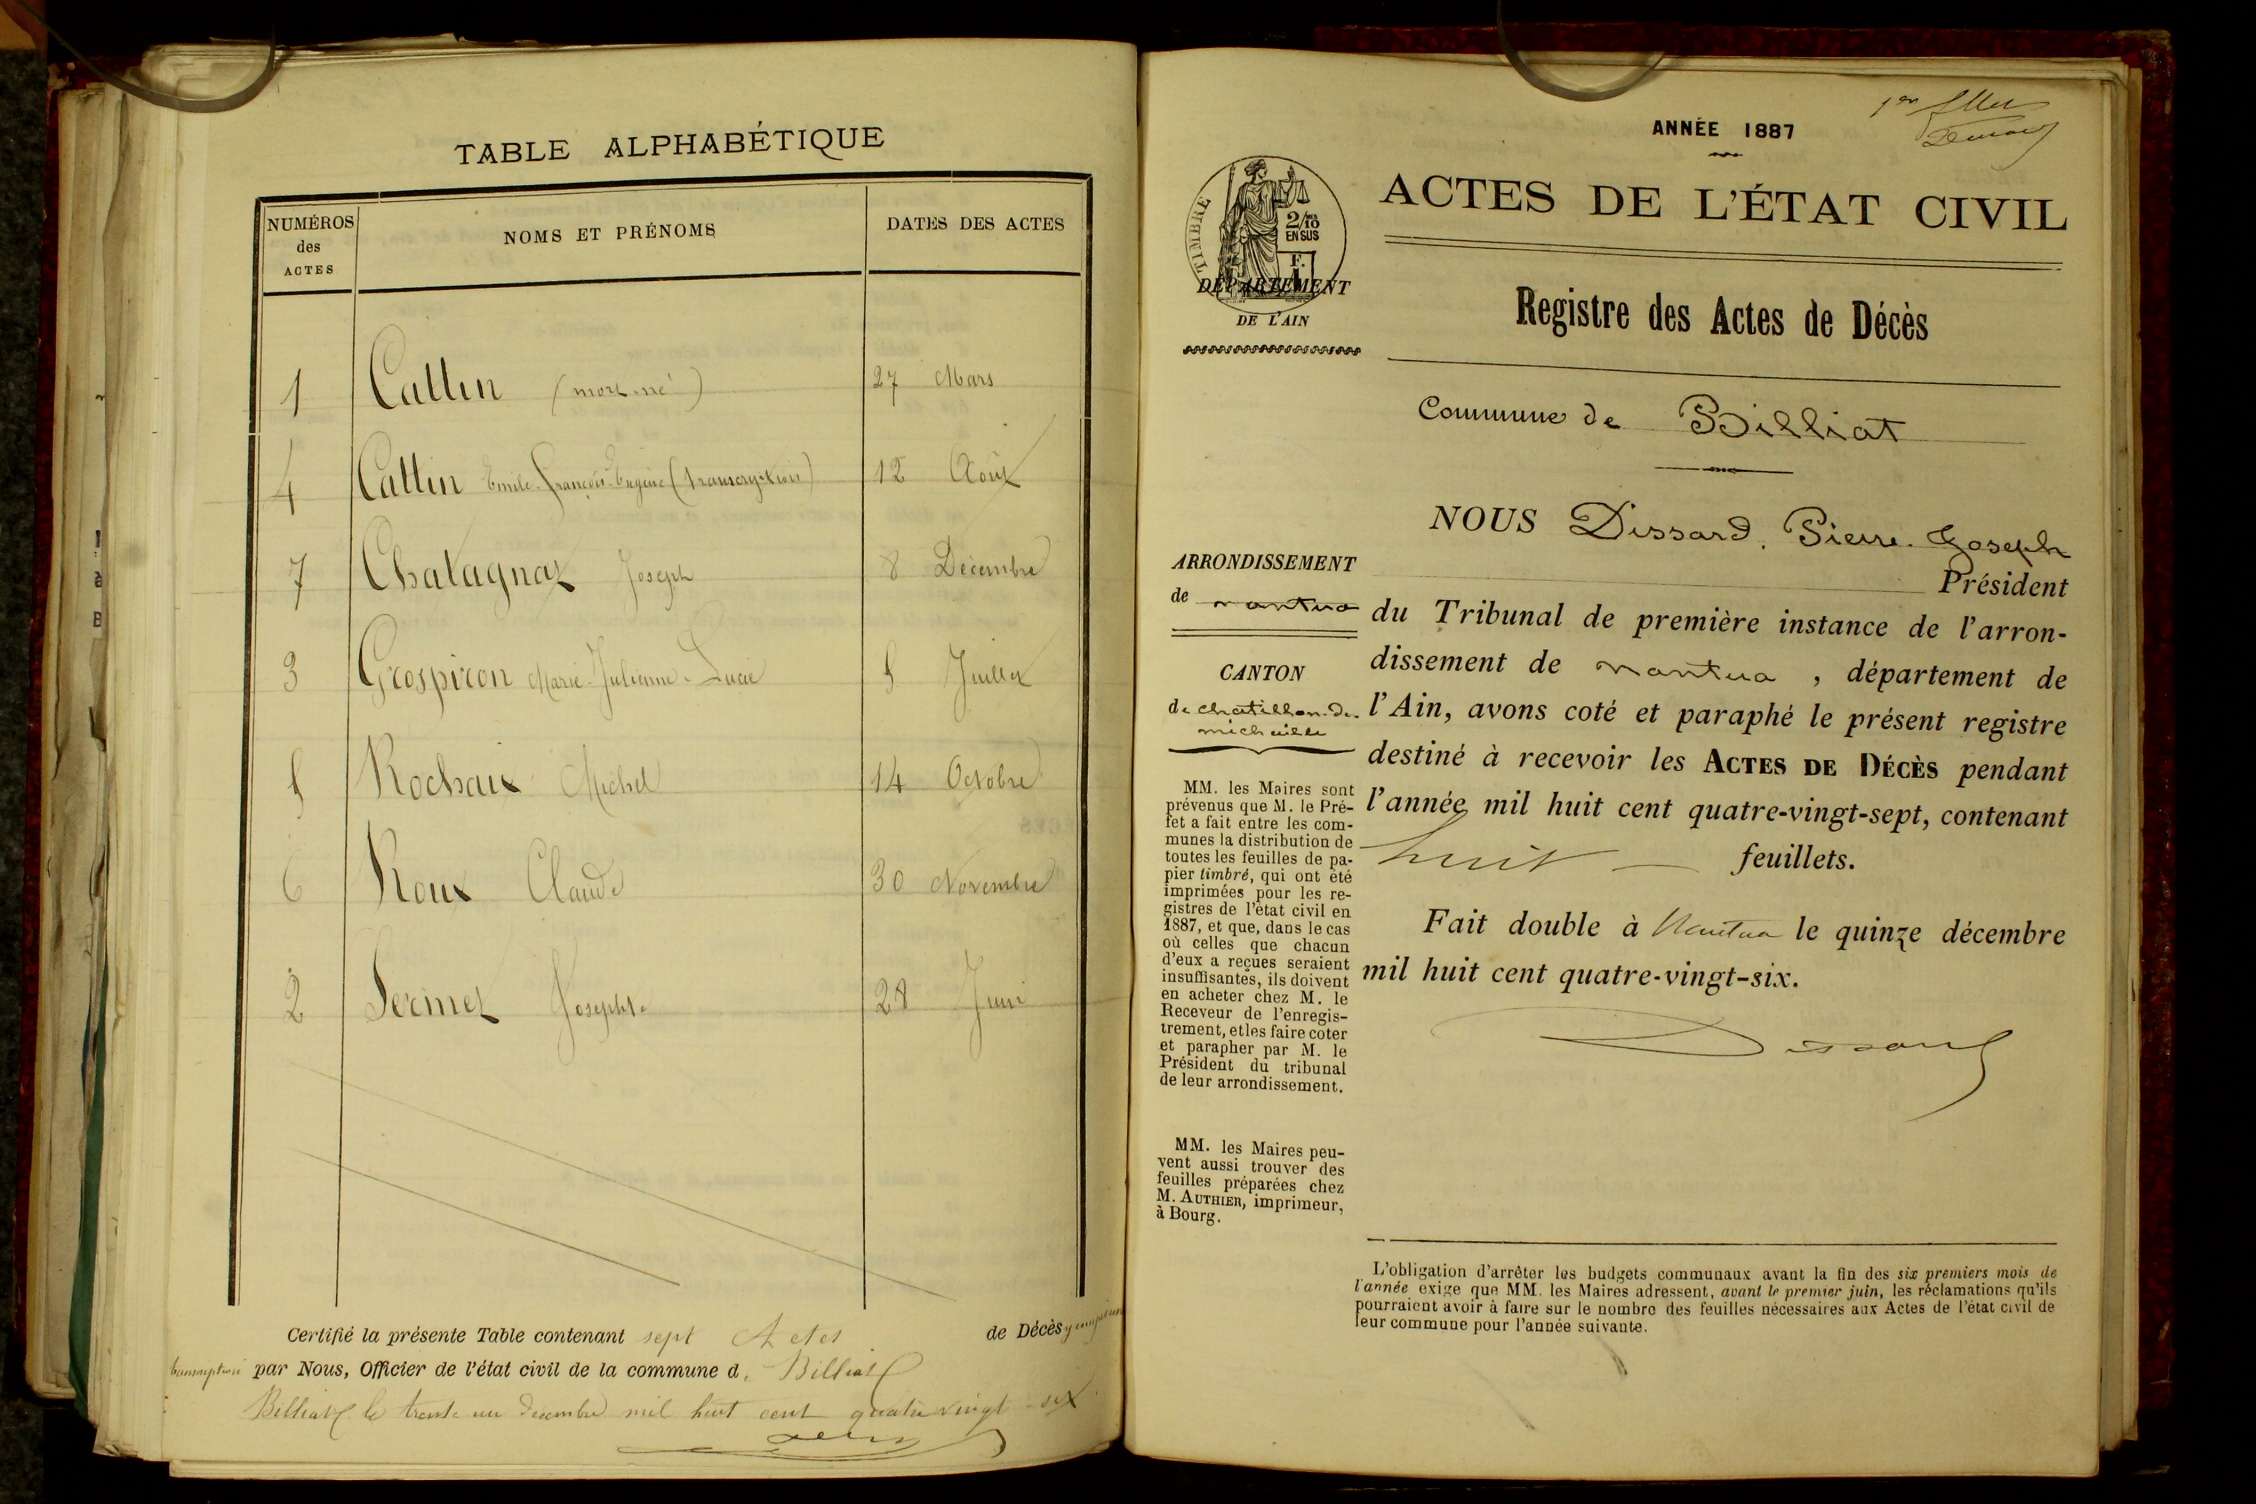 TABLE ALPHABÉTIQUE
NUMÉROS des ACTES
NOMS ET PRÉNOMS
DATES DES ACTES
1 Cattin (mort-né) 27 Mars
4 Cattin Emile-François-Eugène (transcription) 12 Août
7 Chatagnat Joseph 8 Décembre
3 Grospiron Marie-Julienne-Lucie 5 Juillet
5 Rochaix Michel 14 Octobre
6 Roux Claude 30 Novembre
2 Sermet Josephte 28 Juin
Certifié la présente Table contenant sept Actes de Décès y compris une
transcription par Nous, Officier de l'état civil de la commune d. Billiat
Billiat le trente un décembre mil huit cent quatre vingt-six
1er
ANNÉE 1887
ACTES DE L'ÉTAT CIVIL
TIMBRE
2/10
EN SUS
F.
DÉPARTEMENT
DE L'AIN
Registre des Actes de Décès
Commune de Billiat
NOUS Dissard, Pierre-Joseph
Président
du Tribunal de première instance de l'arron-
dissement de Nantua, département de
l'Ain, avons coté et paraphé le présent registre
destiné à recevoir les ACTES DE DÉCÈS pendant
l'année mil huit cent quatre-vingt-sept, contenant
huit feuillets.
Fait double à Nantua le quinze décembre
mil huit cent quatre-vingt-six.
Dissard
ARRONDISSEMENT
de Nantua
CANTON
de Chatillon-de-
Michaille
MM. les Maires sont
prévenus que M. le Pré-
fet a fait entre les com-
munes la distribution de
toutes les feuilles de pa-
pier timbré, qui ont été
imprimées pour les re-
gistres de l'état civil en
1887, et que, dans le cas
où celles que chacun
d'eux a reçues seraient
insuffisantes, ils doivent
en acheter chez M. le
Receveur de l'enregis-
trement, et les faire coter
et parapher par M. le
Président du tribunal
de leur arrondissement.
MM. les Maires peu-
vent aussi trouver des
feuilles préparées chez
M. AUTHIER, imprimeur,
à Bourg.
L'obligation d'arrêter les budgets communaux avant la fin des six premiers mois de
l'année exige que MM. les Maires adressent, avant le premier juin, les réclamations qu'ils
pourraient avoir à faire sur le nombre des feuilles nécessaires aux Actes de l'état civil de
leur commune pour l'année suivante.